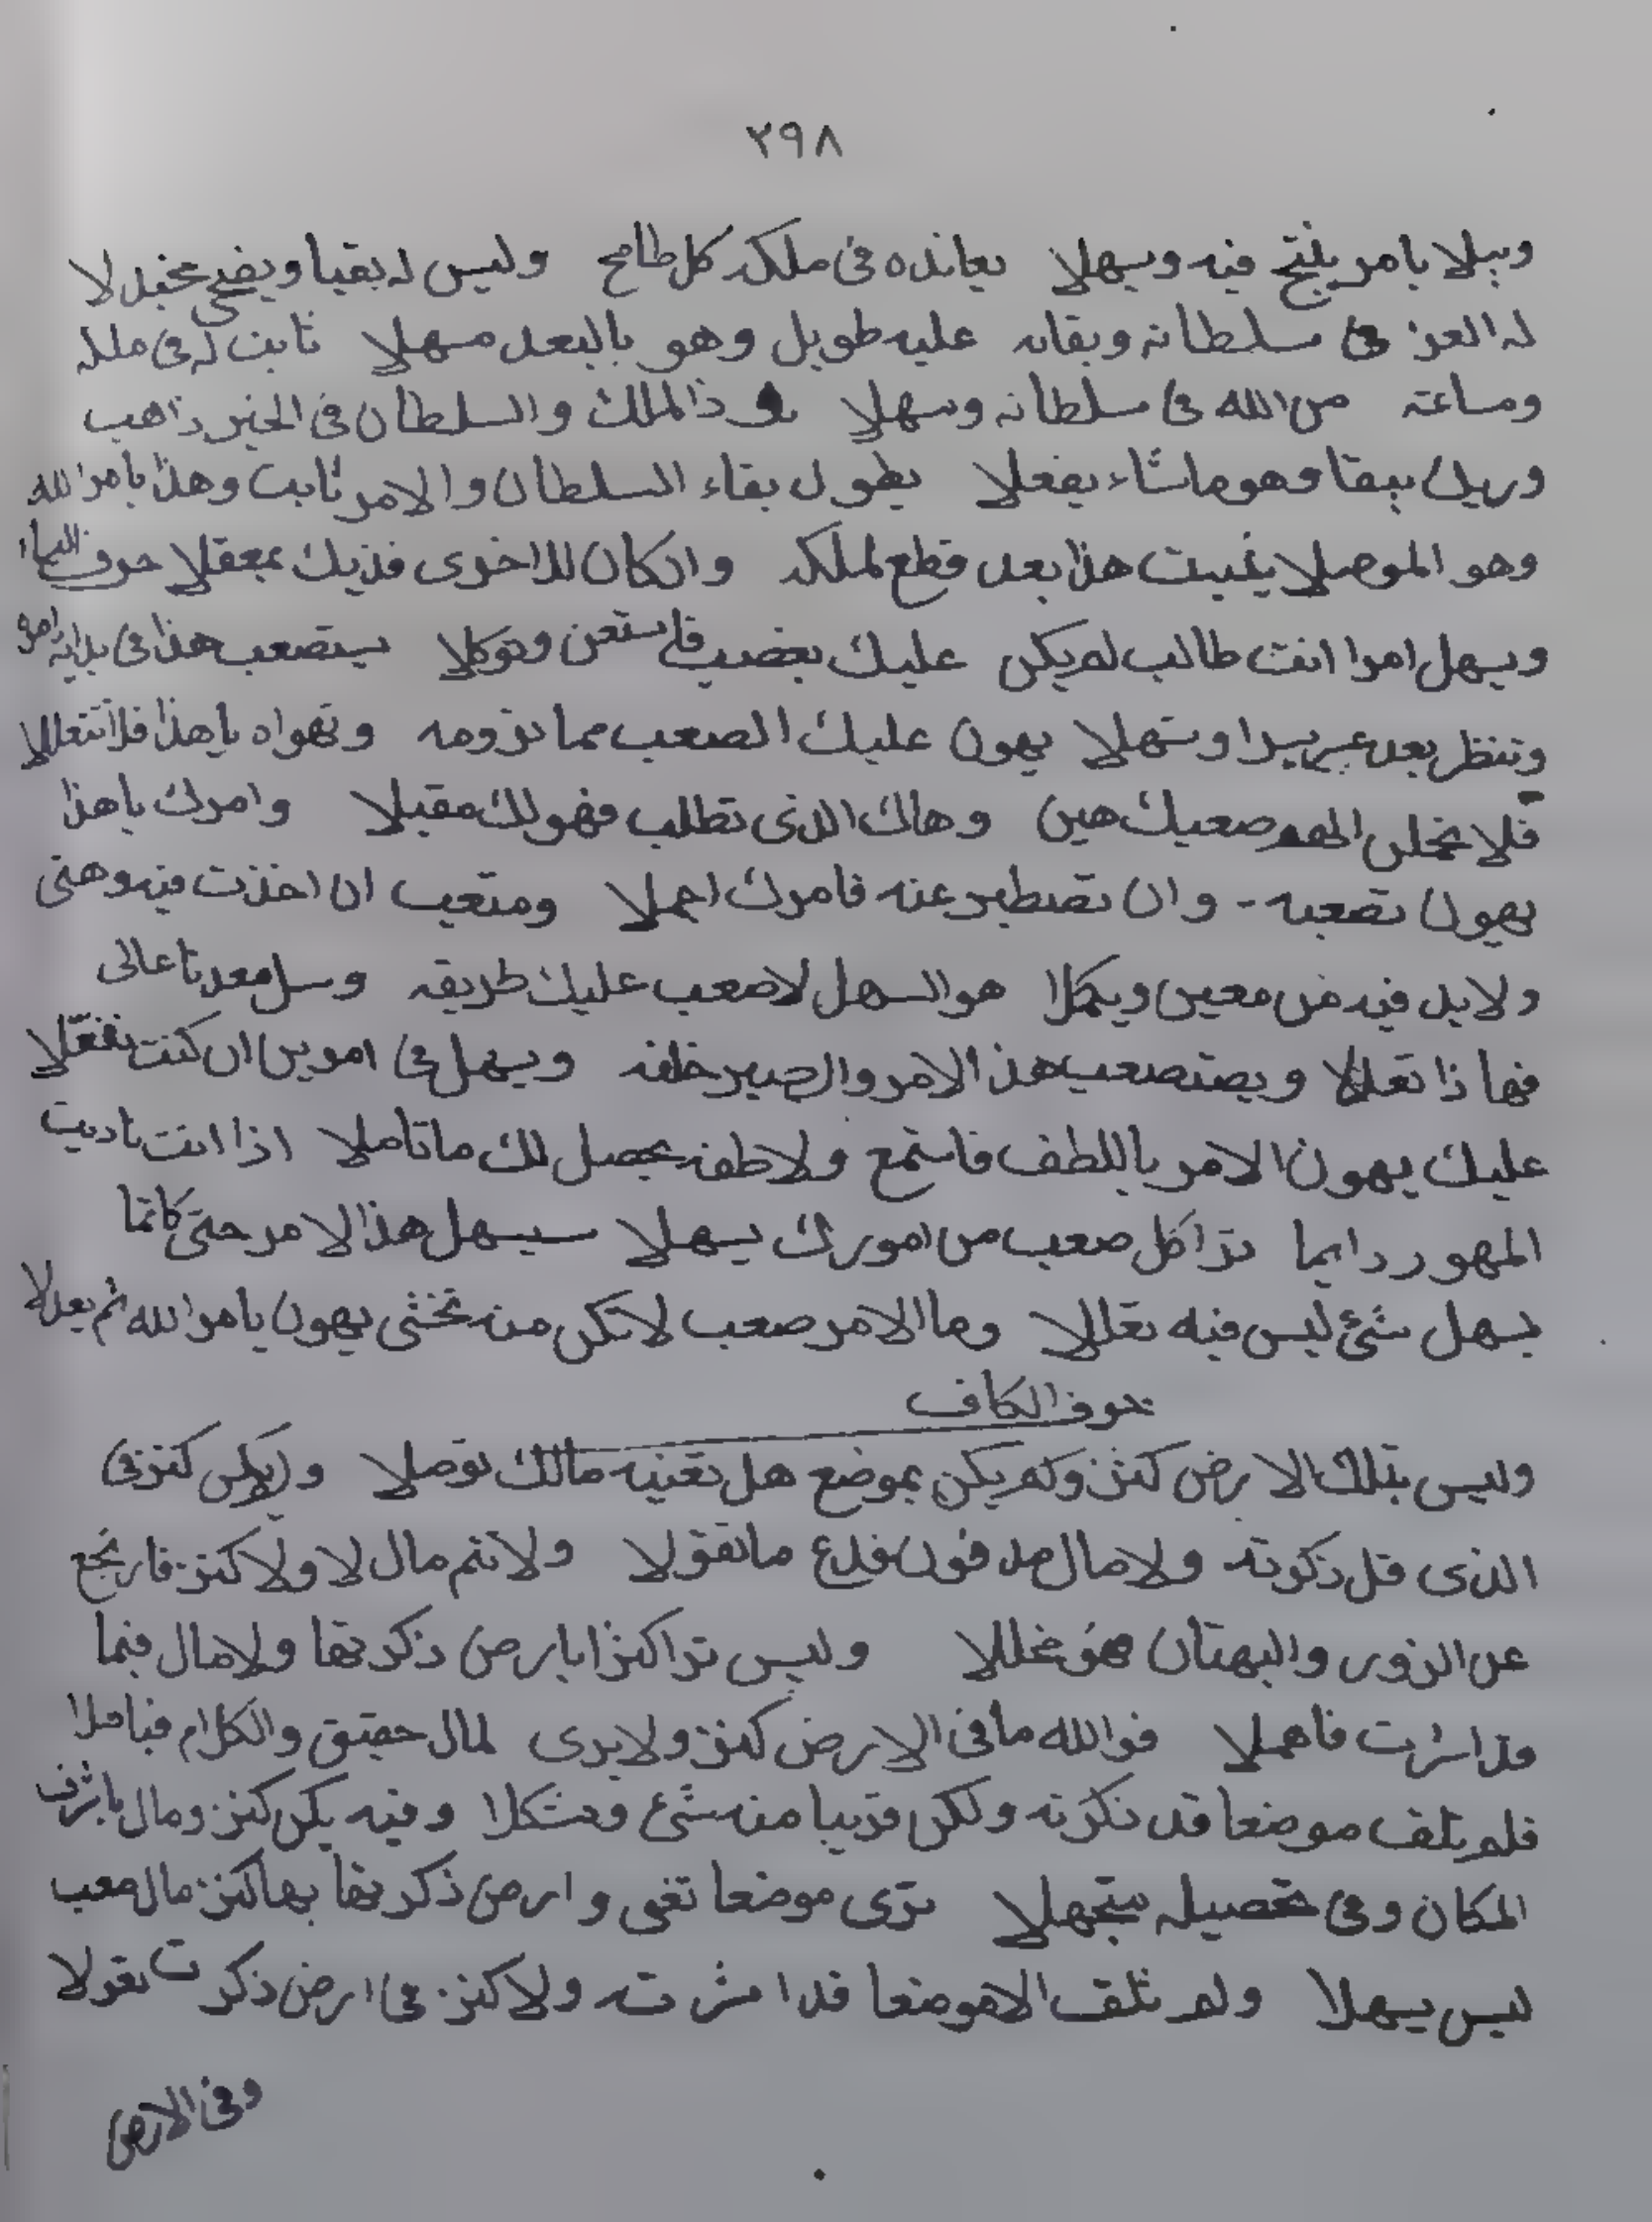 ٢٩٨
ويبلا بامر ينتج فيه ويسهلا يعانده فى ملكه كل طامح وليس له بقيا ويضحى
له العز فى سلطانه وبقانه عليه طويل وهو بالبعد مسهلا ثابت له فى ملكه
وساعته من الله فى سلطانه وسهلا ذالملك والسلطان فى الخير ذاهب
يبقا وهو ماشاء يفعلا يطول بقاء السلطان والامر ثابت وهذا بامر الله
وهو الموصلا يثبت هذا بعد قطع لملكه وان كان للاخرى فذيك بمعقلا حرف الياء
ويسهل امرا انت طالب لم يكن عليك بغضب فاستعن وتوكلا يستصعب هذا فى بداية امره
وتنظر بعد عسر يسرا وتسهلا يهون عليك الصعب مما ترومه وتهواه ياهذا فلا تتعللا
فلا تحملن الهم صعبك هين وهاك الذى تطلب فهو لك مقبلا وامرك ياهذا
يهون تصعبه - وان تصطبر عنه فامرك اجملا ومتعب ان اخذت فيه وهنى
ولابد فيه من معين ويكملا هو السهل لاصعب عليك طريقه وسل معدنا عالى
فماذا تعللا ويصتصعب هذا الامر والصبر خلفه ويسهل فى امورين ان كنت تفعلا
عليك يهون الامر باللطف فاستمع ولاطفه يحصل لك ما تاملا اذا انت ناديت
المهور دايما ترا كل صعب من امورك يسهلا سيسهل هذا الامر حتى كانما
يسهل شئ ليس فيه تعللا وما الامر صعب لا تكن منه تخشى يهون يامر الله ثم يعدلا
حرف الكاف
وليس بتلك الارض كنز ولم يكن بموضع هل تعنيه مالك توصلا ولم يكن كنز فى
الذى قل ذكرته ولا مال مدفون فدع ما تقولا ولا تتم مال لا ولا كنز فارتجع
عن الزور والبهتان مخللا وليس ترا كنزا بارض ذكرتها ولا مال فيما
قد اشرت فاهملا فوالله ما فى الارض كنز ولا يرى لمال حقيق والكلام فباملا
فلم تلف موضعا قد ذكرته ولكن قريبا منه شئ ومشكلا وفيه يكن كنز ومال باشرف
المكان وفى تحصيله ستجهلا ترى موضعا تغنى وارض ذكرتها بها كنز مال صعب
ليس يسهلا ولم تلف الا موضعا قد اشرته ولا كنز فى ارض ذكرت تقولا
وفى الارض